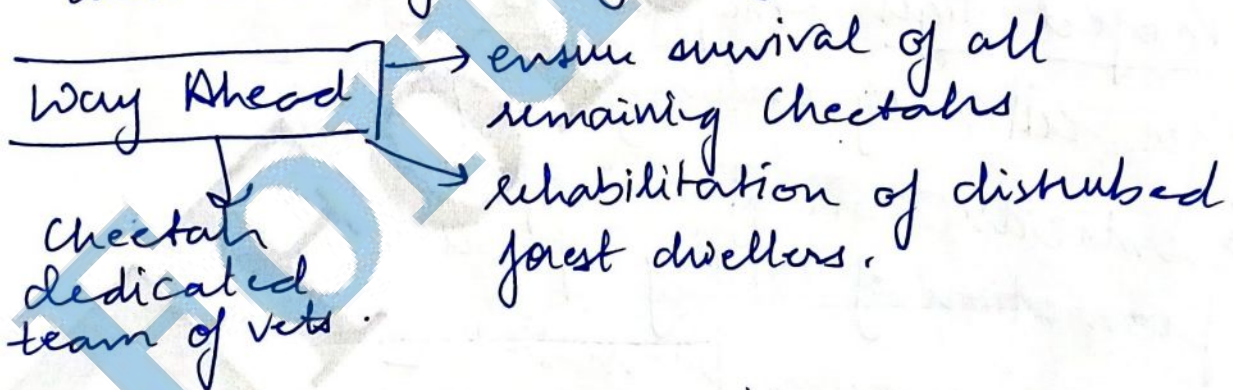 Way Ahead
→ ensure survival of all
remaining Cheetahs
→ rehabilitation of distrubed
forest dwellers.
Cheetah
dedicated
team of vets.
Foru